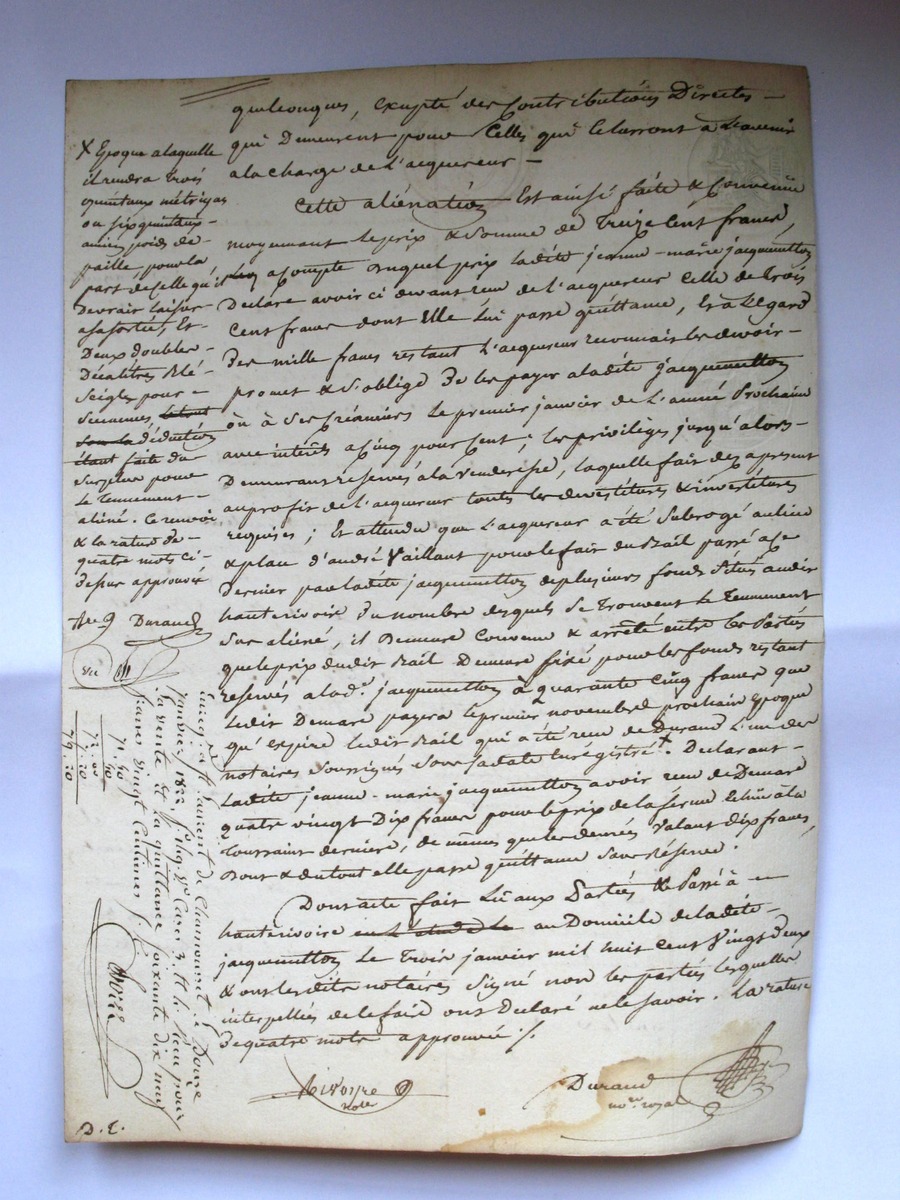 quelconques, excepté des Contributions Directes
qui Demeurent pour Celles qui Cburront à L'avenir
a la charge de L'acquereur
Cette aliénation Est ainsi faite & Convenue
moyennant le prix & Somme de Treize Cent francs,
acompte Duquel prix ladite jeanne-marie jacquemetton
Declare avoir ci devant reçu de l'acquereur Celle de Trois
Cent francs dont Elle Lui passe quittance, Et à L'egard
Des mille francs restant L'acquereur reconnait les devoir
promet & S'oblige De les payer a ladite jacquemetton
où à Ses Créanciers le premier janvier de L'année Prochaine
avec intérêts a Cinq pour Cent; les privilèges jusqu'alors
Demeurant reservés à la Venderesse, laquelle fait des apresent
au profit de l'acquereur toutes les devestitures & investitures
requises; Et attendu que L'acquereur a été Subrogé au lieu
& place d'andré Vaillant pour le fait du Bail passé a ce
Dernier par ladite jacquemetton de plusieurs fonds Situés audit
hauterivoire Du nombre desquels Se Trouvent le Tennement
Sus aliéné, il Demeure Convenu & arrêté entre les Parties
que le prix dudit Bail Demeure fixé pour les fonds restant
reservés a lad.e jacquemetton à quarante Cinq francs que
ledit Demare payera le premier novembre prochain Epoque
qu'Expire ledit Bail qui a été reçu de Durand L'un des
notaires Soussignés Sous sa date Enrégistré X. Declarant
Ladite jeanne-marie jacquemetton avoir reçu de Demare
quatre vingt Dix francs pour le prix de la ferme Echue à la
Toussaint derniere, de même que les denrées Valant dix francs,
Dont & du tout elle passe quittance Sans Réserve.
Dont acte fait Lû aux Parties & Passé à
hauterivoire en L'etude de au Domicile de ladite
jacquemetton Le Trois janvier mil huit Cent Vingt deux
& ont lesdits notaires Signé non les parties lesquelles
interpellées de le faire ont Declaré ne le Savoir. La rature
De quatre mots approuvée ./.
Durand
no.re royal
X Epoque a laquelle
il rendra Trois
quintaux métriques
ou Six quintaux
ancien poids de
paille, pour la
part de Celle qu'il
Devrait laisser
a sa Sortie, Et
Deux doubles
Décalitres Blé
Seigle pour
Semences, le tout
Sous la déduction
étant faite du
Surplus pour
le Tennement
aliéné. Ce renvoi
& la rature de
quatre mots ci-
dessus approuvés
Durand
Enreg. à St Laurent de Chamousset le Douze
janvier 1822, f.o Reçu pour
la vente et la quittance soixante dix neuf
francs vingt Centimes
71. 40
72. 00
7. 20
79. 20
D. E.